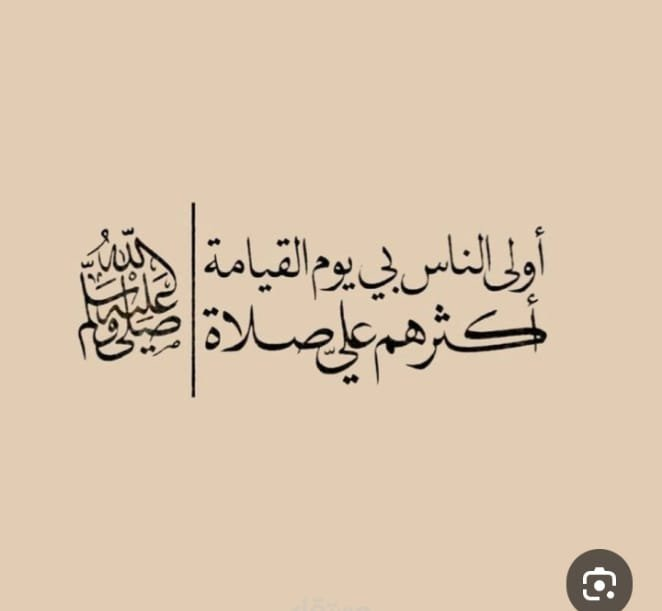 أولى الناس بي يوم القيامة
أكثرهم علي صلاة
صلى الله عليه وسلم